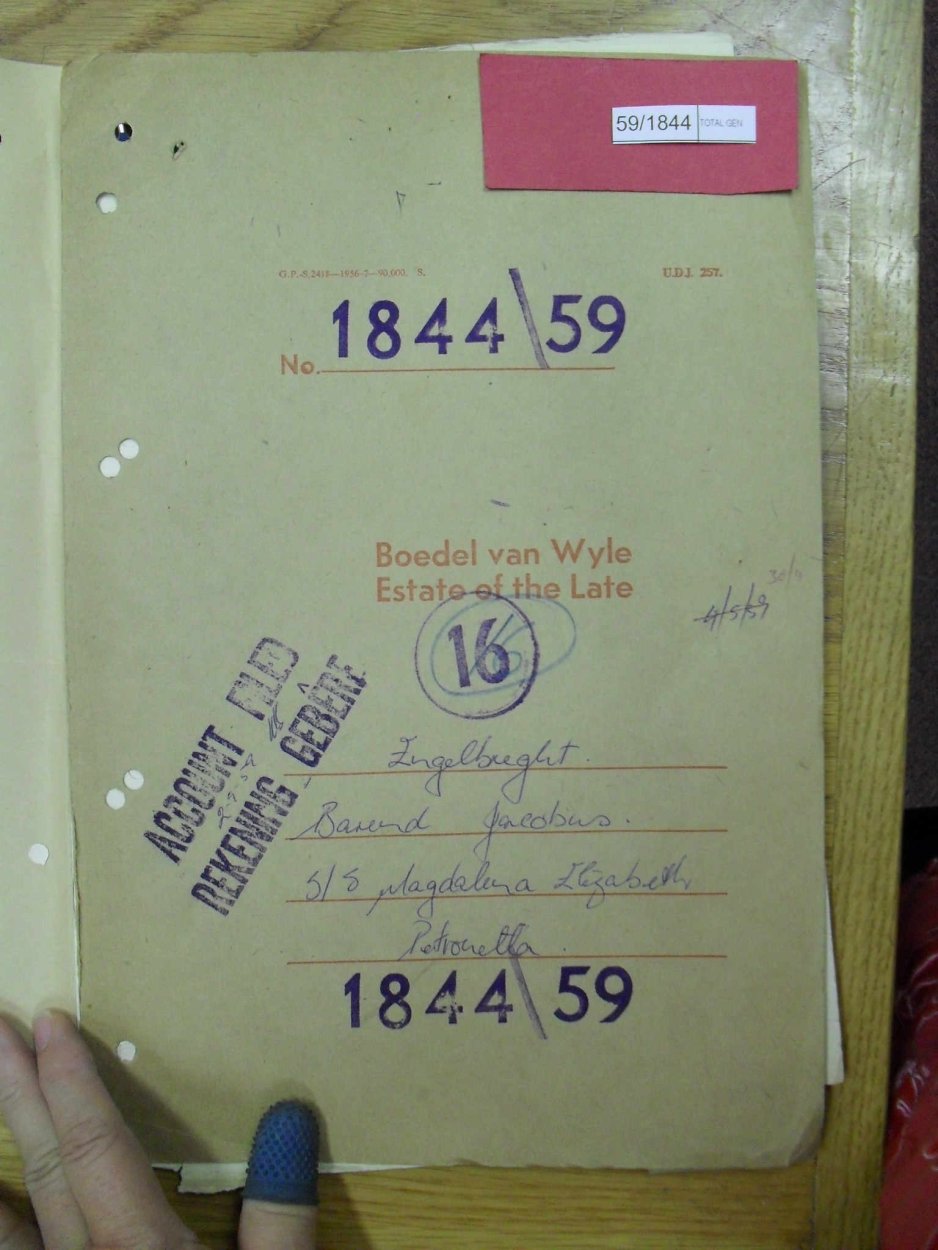 59/1844 TOTAL GEN
G.P.-S.2418—1956-7—90,000. S. U.D.J. 257.
1844\59
No.
Boedel van Wyle
Estate of the Late
4/5/59
16
ACCOUNT FILED
REKENING GEBÊRE
Engelbreght.
Barend Jacobus.
S/S Magdalena Elizabeth
Petronella.
1844\59